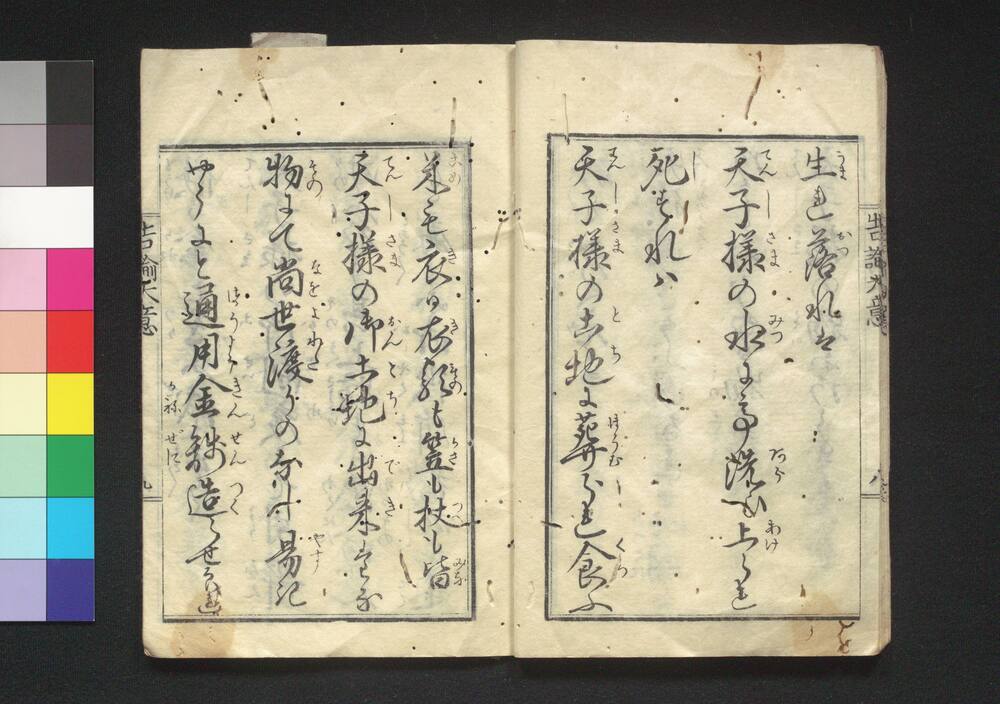 生れ落れは
天子様の水にて洗ひ上られ
死すれハ
天子様の土地に葬られ食ふ
告諭大意
八
米も衣る衣類も笠も杖も皆
天子様の御土地に出来たる
物にて尚世渡りのなし易き
やうにと通用金銭造らせられ
告諭大意
九